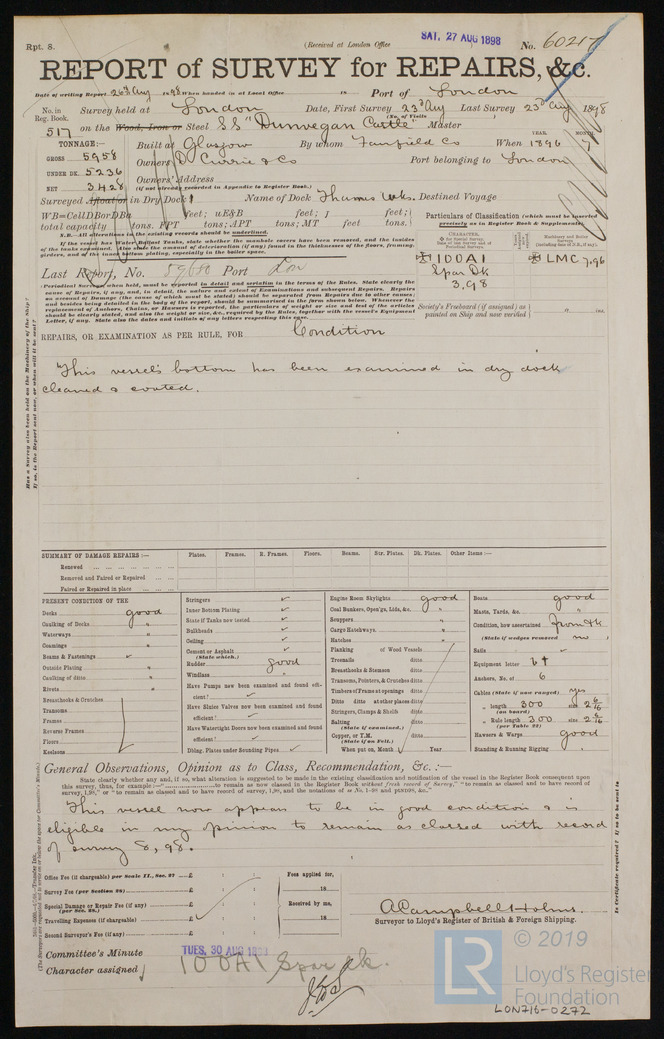 Rpt. 8.
(Received at London Office
SAT. 27 AUG 1898
No. 60217
REPORT of SURVEY for REPAIRS, &c.
Date of writing Report 26th Aug 1898 When handed in at Local Office
Port of London
No. in Reg. Book.
Survey held at London
Date, First Survey 23rd Aug Last Survey 23rd Aug 1898
(No. of Visits
517 on the Wood, Iron or Steel SS "Dunvegan Castle" Master
TONNAGE:—
Built at Glasgow By whom Fairfield Co When 1896 7
YEAR. MONTH.
GROSS 5958
Owners D. Currie & Co Port belonging to London
UNDER DK. 5236
Owners' Address
NET 3428
(if not already recorded in Appendix to Register Book.)
Surveyed Afloat or in Dry Dock Name of Dock Thames Wks. Destined Voyage
WB=CellDBorDBa feet; uE&B feet; f feet;
total capacity tons. FPT tons; APT tons; MT feet tons.
Particulars of Classification (which must be inserted precisely as in Register Book & Supplement).
N.B.—All alterations in the existing records should be underlined.
If the vessel has Water Ballast Tanks, state whether the manhole covers have been removed, and the insides of the tanks examined. Also state the amount of deterioration (if any) found in the thicknesses of the floors, frames, girders, and of the inner bottom plating, especially in the boiler space.
100A1
Spar Dk
3,98
LMC 7,96
Last Report, No. 59650 Port Lon
Periodical Surveys when held, must be reported in detail and seriatim in the terms of the Rules. State clearly the cause of Repairs, if any, and, in detail, the nature and extent of Examinations and subsequent Repairs. Repairs on account of Damage (the cause of which must be stated) should be separated from Repairs due to other causes; and besides being detailed in the body of the report, should be summarised in the form shown below. Whenever the replacement of Anchors, Chains, or Hawsers is reported, the particulars of weight or size and test of the articles should be clearly stated, and also the weight or size, &c., required by the Rules, together with the vessel's Equipment Letter, if any. State also the dates and initials of any letters respecting this case.
Society's Freeboard (if assigned) as painted on Ship and now verified
REPAIRS, OR EXAMINATION AS PER RULE, FOR Condition
This vessel's bottom has been examined in dry dock
cleaned & coated.
Has a Survey also been held on the Machinery of the Ship?
If so, is the Report sent now, or when will it be sent?
SUMMARY OF DAMAGE REPAIRS:—
Plates. Frames. R. Frames. Floors. Beams. Str. Plates. Dk. Plates. Other Items:—
Renewed
Removed and Faired or Repaired
Faired or Repaired in place
PRESENT CONDITION OF THE
Decks good
Caulking of Decks "
Waterways "
Coamings "
Beams & Fastenings ✓
Outside Plating "
Caulking of ditto "
Rivets "
Breasthooks & Crutches
Transoms
Frames
Reverse Frames
Floors
Keelsons
Stringers ✓
Inner Bottom Plating ✓
State if Tanks now tested ✓
Bulkheads ✓
Ceiling ✓
Cement or Asphalt ✓
(State which.)
Rudder good
Windlass
Have Pumps now been examined and found efficient? ✓
Have Sluice Valves now been examined and found efficient? ✓
Have Watertight Doors now been examined and found efficient? ✓
Dblng. Plates under Sounding Pipes ✓
Engine Room Skylights good
Coal Bunkers, Open'gs, Lids, &c. "
Scuppers "
Cargo Hatchways "
Hatches "
Planking of Wood Vessels
Treenails ditto
Breasthooks & Stemson ditto
Transoms, Pointers, & Crutches ditto
Timbers of Frame at openings ditto
Ditto ditto at other places ditto
Stringers, Clamps & Shelfs ditto
Salting ditto
(State if examined.)
Copper, or Y.M. ditto
(State if on Felt.)
When put on, Month Year
Boats good
Masts, Yards, &c. "
Condition, how ascertained from dk
(State if wedges removed no
Sails ✓
Equipment letter b†
Anchors, No. of 6
Cables (State if now ranged) yes
" length 300 size 2 6/16
(on board)
" Rule length 300 size 2 6/16
(per Table 22)
Hawsers & Warps good
Standing & Running Rigging
General Observations, Opinion as to Class, Recommendation, &c. :—
State clearly whether any and, if so, what alteration is suggested to be made in the existing classification and notification of the vessel in the Register Book consequent upon this survey, thus, for example :—"to remain as now classed in the Register Book without fresh record of Survey," "to remain as classed and to have record of survey, 1,98," or "to remain as classed and to have record of survey, 1,98, and the notations of
This vessel now appears to be in good condition & is
eligible in my opinion to remain as classed with record
of survey 8,98.
Is Certificate required? If so to be sent to
Office Fee (if chargeable) per Scale II., Sec. 27 £
Survey Fee (per Section 28) £
Special Damage or Repair Fee (if any) £
(per Sec. 28.)
Travelling Expenses (if chargeable) £
Second Surveyor's Fee (if any) £
Fees applied for, 18
Received by me, 18
A Campbell Holms.
Surveyor to Lloyd's Register of British & Foreign Shipping.
Committee's Minute TUES. 30 AUG 1898
Character assigned 100A1 Spar dk.
© 2019
LR
Lloyd's Register
Foundation
LON716-0272